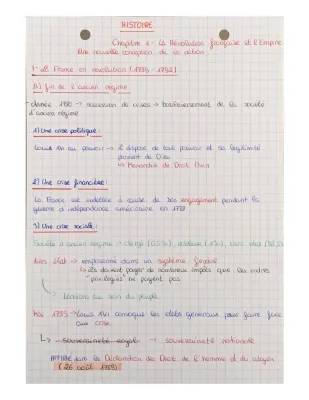 HISTOIRE
Chapitre 1 - La Révolution française et l'Empire
Une nouvelle conception de la nation
I- La France en révolution (1789-1792)
A) fin de l'ancien régime
Année 1780 → succession de crises → bouleversement de la société
d'ancien régime
1) Une crise politique :
Louis XVI au pouvoir → il dispose de tout pouvoir et sa légitimité
provient de Dieu
↳ Monarchie de Droit Divin
2) Une crise financière :
La France est endettée à cause de son engagement pendant la
guerre d'indépendance américaine en
3) Une crise sociale :
Société d'ancien régime → clergé (0.5%), noblesse (1%), tiers état
tiers état → emprisonné dans un système féodal
↳ ils doivent payer de nombreux impôts que les ordres
"privilégiés" ne payent pas
tensions au sein du peuple
Mai 1789 → Louis XVI convoque les états généraux pour faire face
aux crise
↳ souveraineté royale → souveraineté nationale
affirmé dans la Déclaration des Droit de l'homme et du citoyen
(26 août 1789)